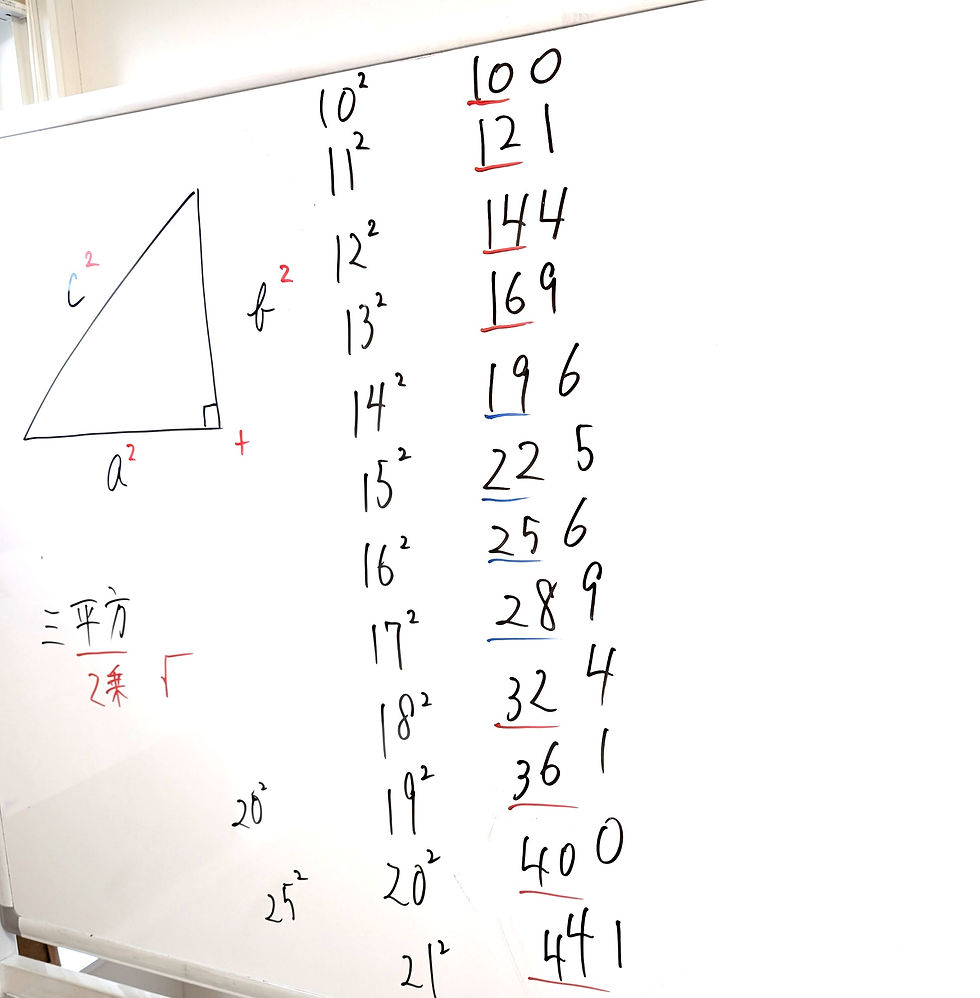 c²
b²
a²
+
三平方
2乗 √
20²
25²
10² 100
11² 121
12² 144
13² 169
14² 196
15² 225
16² 256
17² 289
18² 324
19² 361
20² 400
21² 441